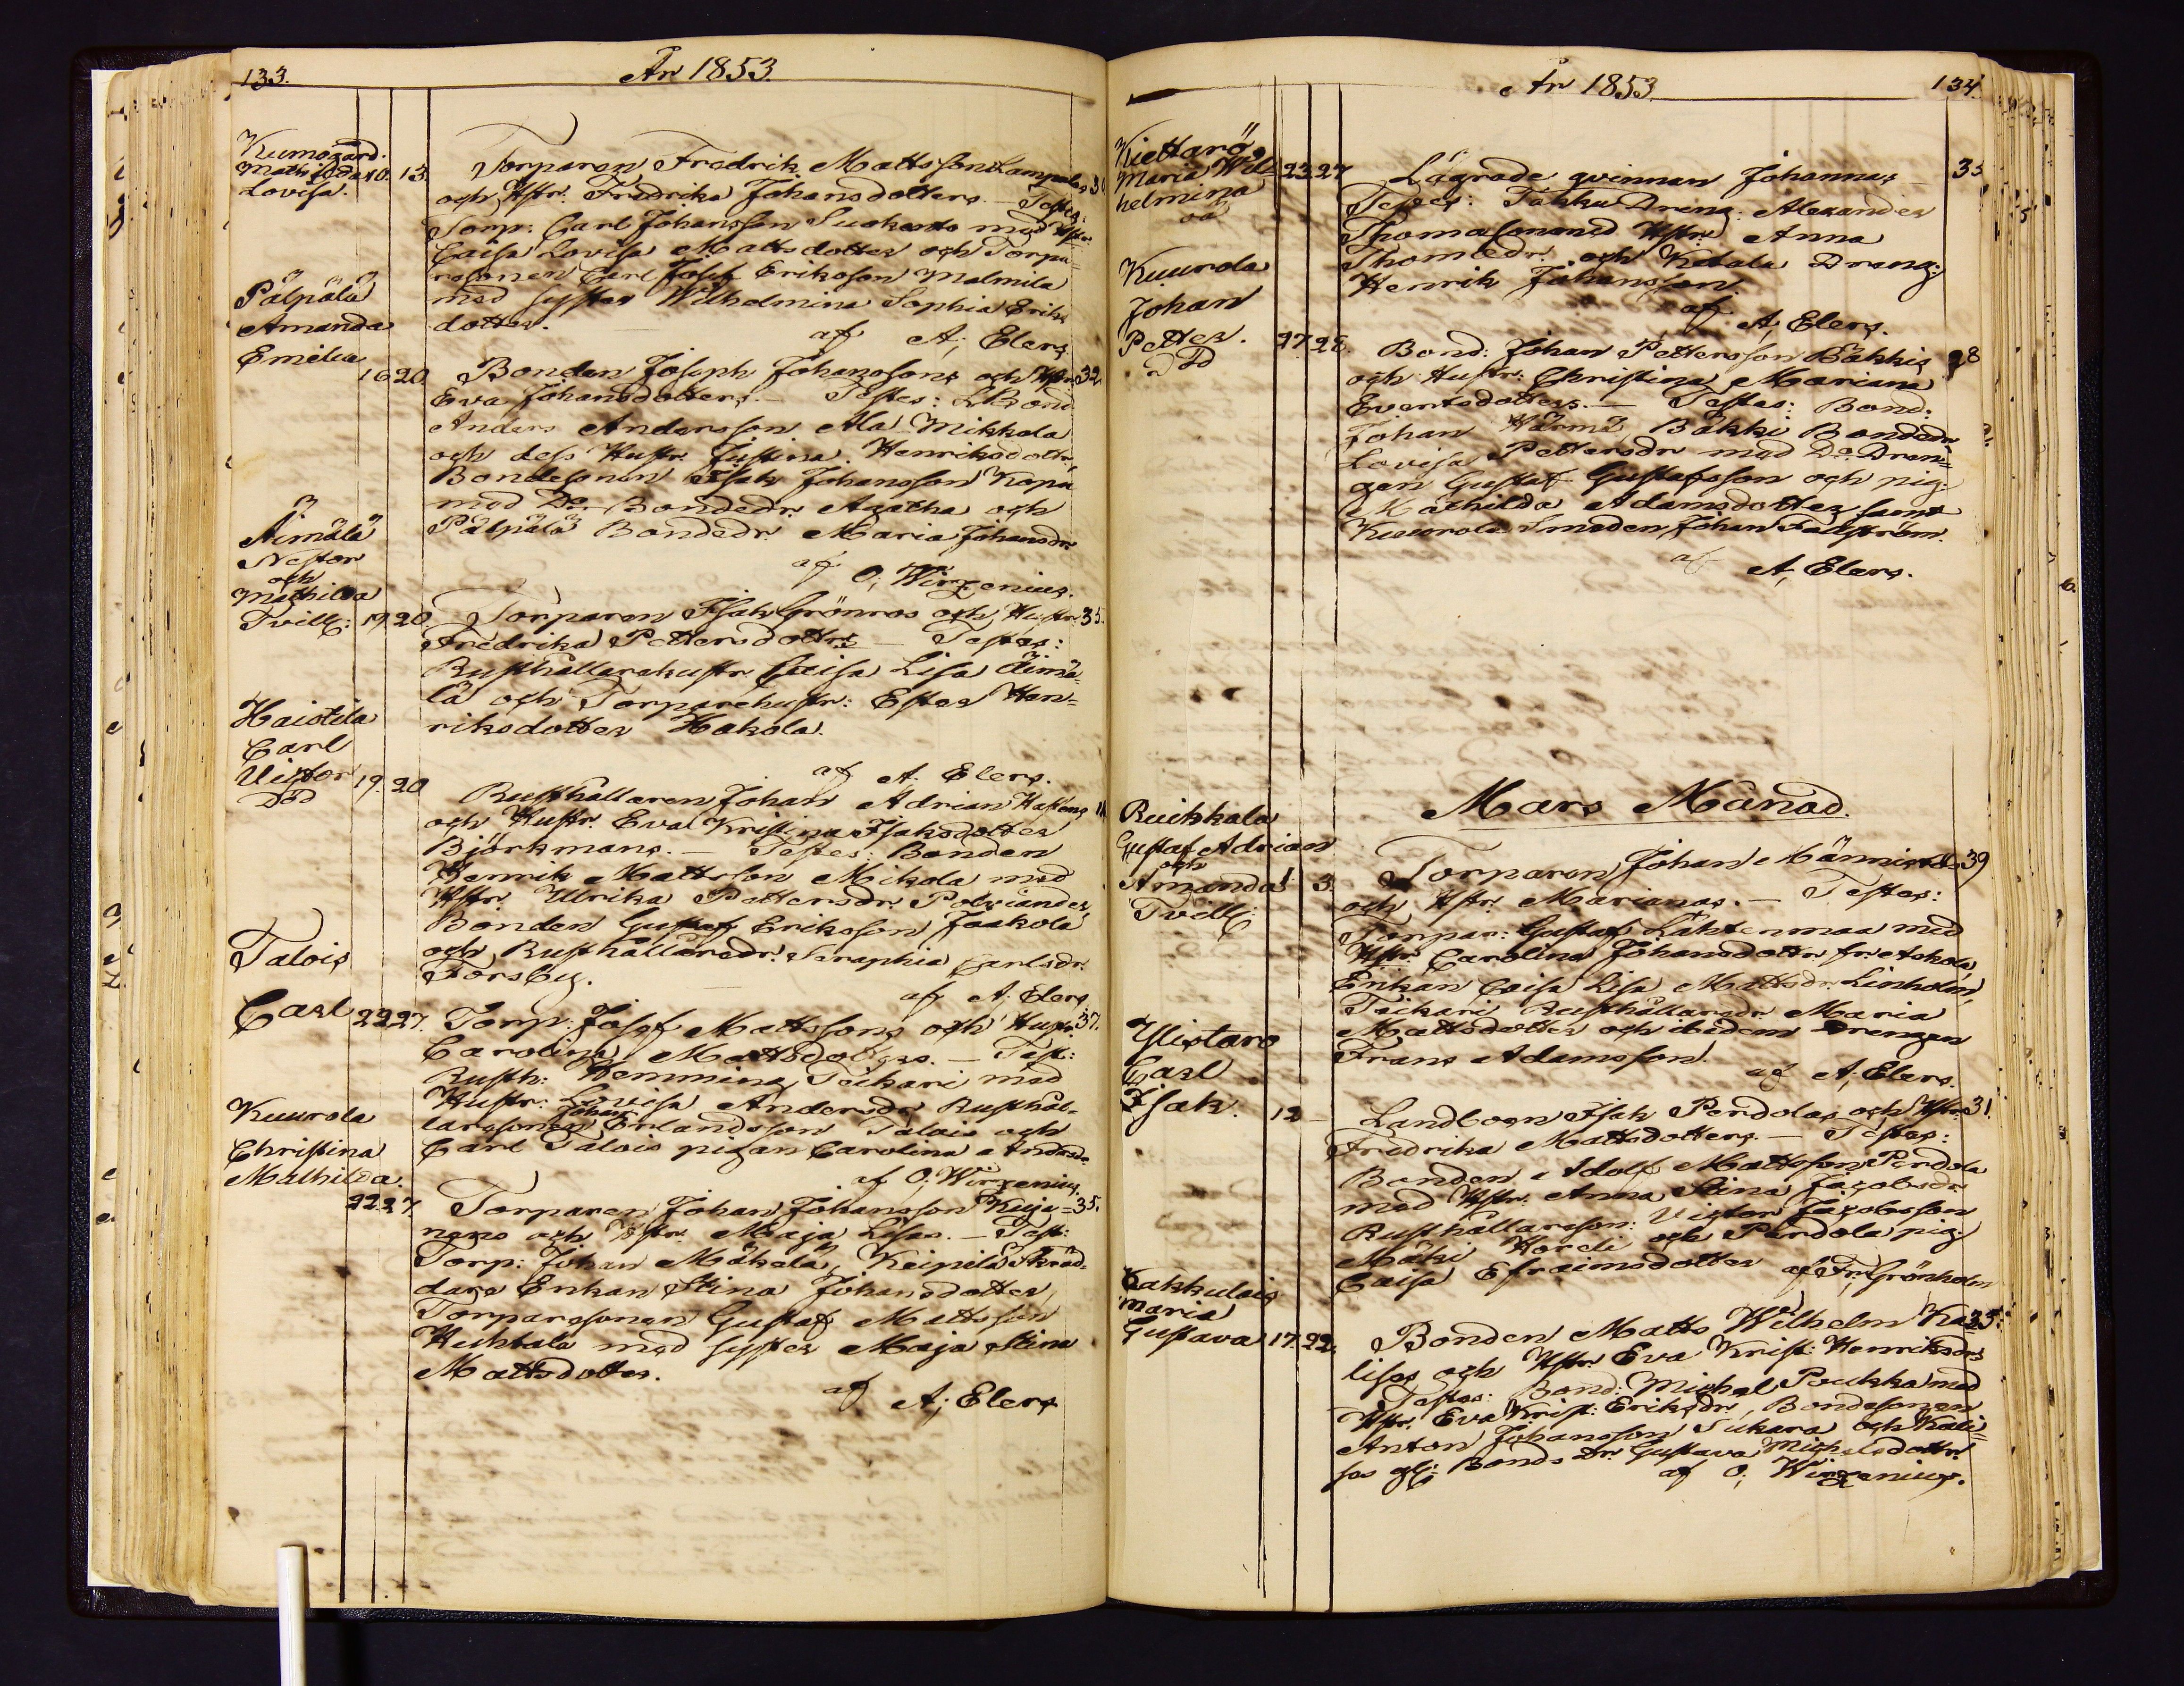 133.
År 1853.
Kumogård.
Mathilda 10. 13.
Lovisa.
Torparen Fredrik Mattsson Lampolas
och Hstr. Fredrika Johansdotters. — Testes:
Torp: Carl Johansson Suokanto med Hstr.
Caisa Lovisa Mattsdotter och Torpa=
resonen Carl Josef Eriksson Malmila
med syster Wilhelmina Sophia Eriks
dotter.
af A; Elers
Pälpälä
Amanda
Emilia
16 20.
Bonden Joseph Johanssons och Hstr. 32.
Eva Johansdotters. — Testes: Bond
Anders Andersson Ala Mikkola
och dess Hustr. Justina Henriksdottr,
Bondesonen Isak Johansson Kopu
med Do Bondedr. Agatha och
Pälpälä Bondedr Maria Johansdr.
af O; Wirzenius.
Äimälä
Nestor
och
Mathilda
Tvill: 19. 20.
Torparen Isak Grönros och Hustr. 35.
Fredrika Pettersdottrs — Testes:
Rusthållarehustr. Caisa Lisa Äimä=
lä och Torparehustr: Ester Hen=
riksdotter Hakola.
af A. Elers.
Haistila
Carl
Victor 19. 20
Död
Rusthållaren Johan Adrian
och Hustr. Eva Kristina Isaksdotter
Björkmans. — Testes: Bonden
Henrik Mattsson Mikola med
Hstr. Ulrika Pettersdr. Polviander,
Bonden Gustaf Eriksson Jaakola
och Rusthållaredr. Seraphia Carlsdr.
Forsby.
af A; Elers
Talois
Carl 22 27.
Torp: Josef Mattssons och Hustr. 37.
Carolina Mattsdotters. — Test:
Rusth: Hemming Tiikari med
Hustr: Lovisa Andersdr Rusthål=
laresonen Johan Erlandsson Talois och
Carl Talois pigan Carolina Andersdr.
af O; Wirzenius.
Kuurola
Christina
Mathilda.
22. 27.
Torparen Johan Johansson Kuja= 35.
nens och Hstr. Maja Lisas. — Test:
Torp: Johan Mäkelä, Keipilä Skräd=
dare Enkan Stina Johansdotter,
Torparesonen Gustaf Mattsson
Huhtala med syster Maja Stina
Mattsdotter.
af A; Elers
År 1853.
134.
Kiettarö,
Maria Wil= 23. 27
helmina
oä
Lägrade qvinnan Johannas — 35
Testes: Takku Dreng: Alexander
Thomasson med Hstr. Anna
Thomædr. och Ketala Dreng:
Henrik Johansson.
af A; Elers.
Kuurola
Johan
Petter. 27. 28.
Död
Bond: Johan Pettersson Bäkkis 28
och Hustr: Christina Mariana
Evertsdotters. — Testes: Bond:
Johan Härmä Bäkki Bondedr
Lovisa Pettersdr med Do. Dren=
gen Gustaf Gustafsson och pig.
Mathilda Adamsdotter samt
Kuurola Smeden Johan
af A; Elers.
Mars Månad.
Ruikkala
Gustaf Adrian
och
Amanda 1. 3.
Tvill:
Torparen Johan Männistös 39
och Hstr. Marianas. — Testes:
Torpar: Gustaf Lähtenmaa med
Hstr. Carolina Johansdottr. fr.
Enkan Caisa Lisa Mattsdr. Linholm,
Tiikari Rusthållaredr. Maria
Mattsdotter och ibidem Drengen
Frans Adamsson.
af A; Elers.
Ylistaro
Carl
Isak. 12
Landboen Isak Perdolas och Hstr. 31.
Fredrika Mattsdotters. — Testes:
Bonden Adolf Mattsson Perdola
med Hstr. Anna Stina Jacobsdr.
Rusthållareson: Victor Jacobsson
Mäki Horeli och Perdola pig.
Caisa Efraimsdotter af Fr; Grönholm
Kakkulais
Maria
Gustava 17. 22.
Bonden Matts Wilhelm Ka= 25.
lisos och Hstr. Eva Krist: Henriksdrs
Testes: Bond: Michel Poukka med
Hstr. Eva Krist: Eriksdr, Bondesonen
Anton Johansson Tukara och Kali=
sos gl: Bonde Dr. Gustava Michelsdottr.
af O; Wirzenius.